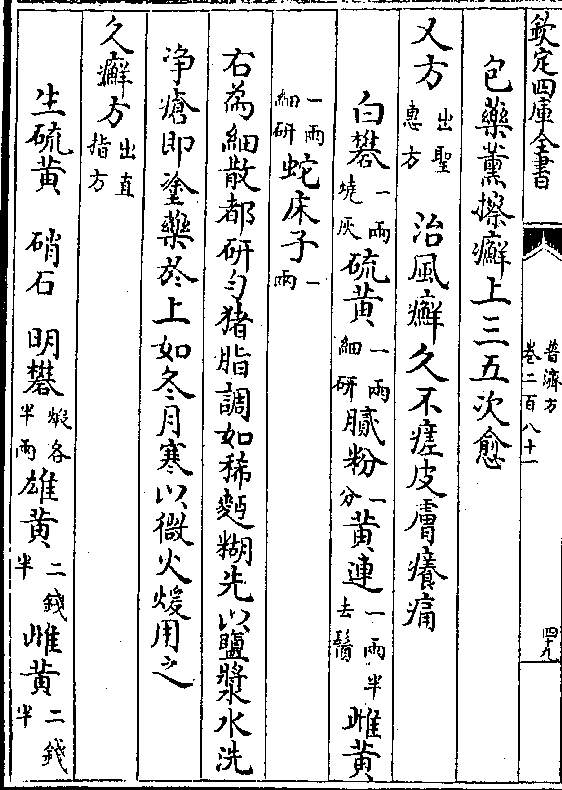 欽定四庫全書
普濟方
卷二百八十一
四十九
包藥薰擦癬上三五次愈
又方出聖惠方 治風癬久不瘥皮膚癢痛
白礬一兩燒灰硫黃一兩細研膩粉一分黃連一兩半去鬚雌黃
一兩細研蛇床子一兩
右為細散都研勻猪脂調如稀麪糊先以鹽漿水洗
净瘡即塗藥於上如冬月寒以微火煖用之
久癬方出直指方
生硫黃 硝石 明礬煅各半兩雄黃二錢半雌黃二錢半